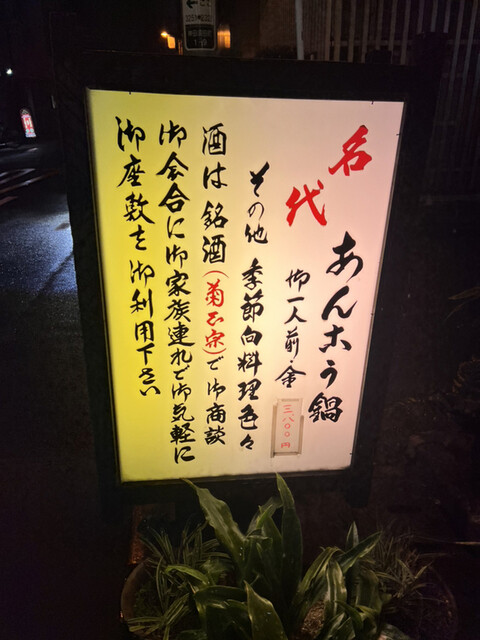 名代
あんこう鍋
御一人前・金
三八〇〇円
その他 季節向料理色々
酒は銘酒(菊正宗)で御商談
御会合に御家族連れで御気軽に
御座敷を御利用下さい